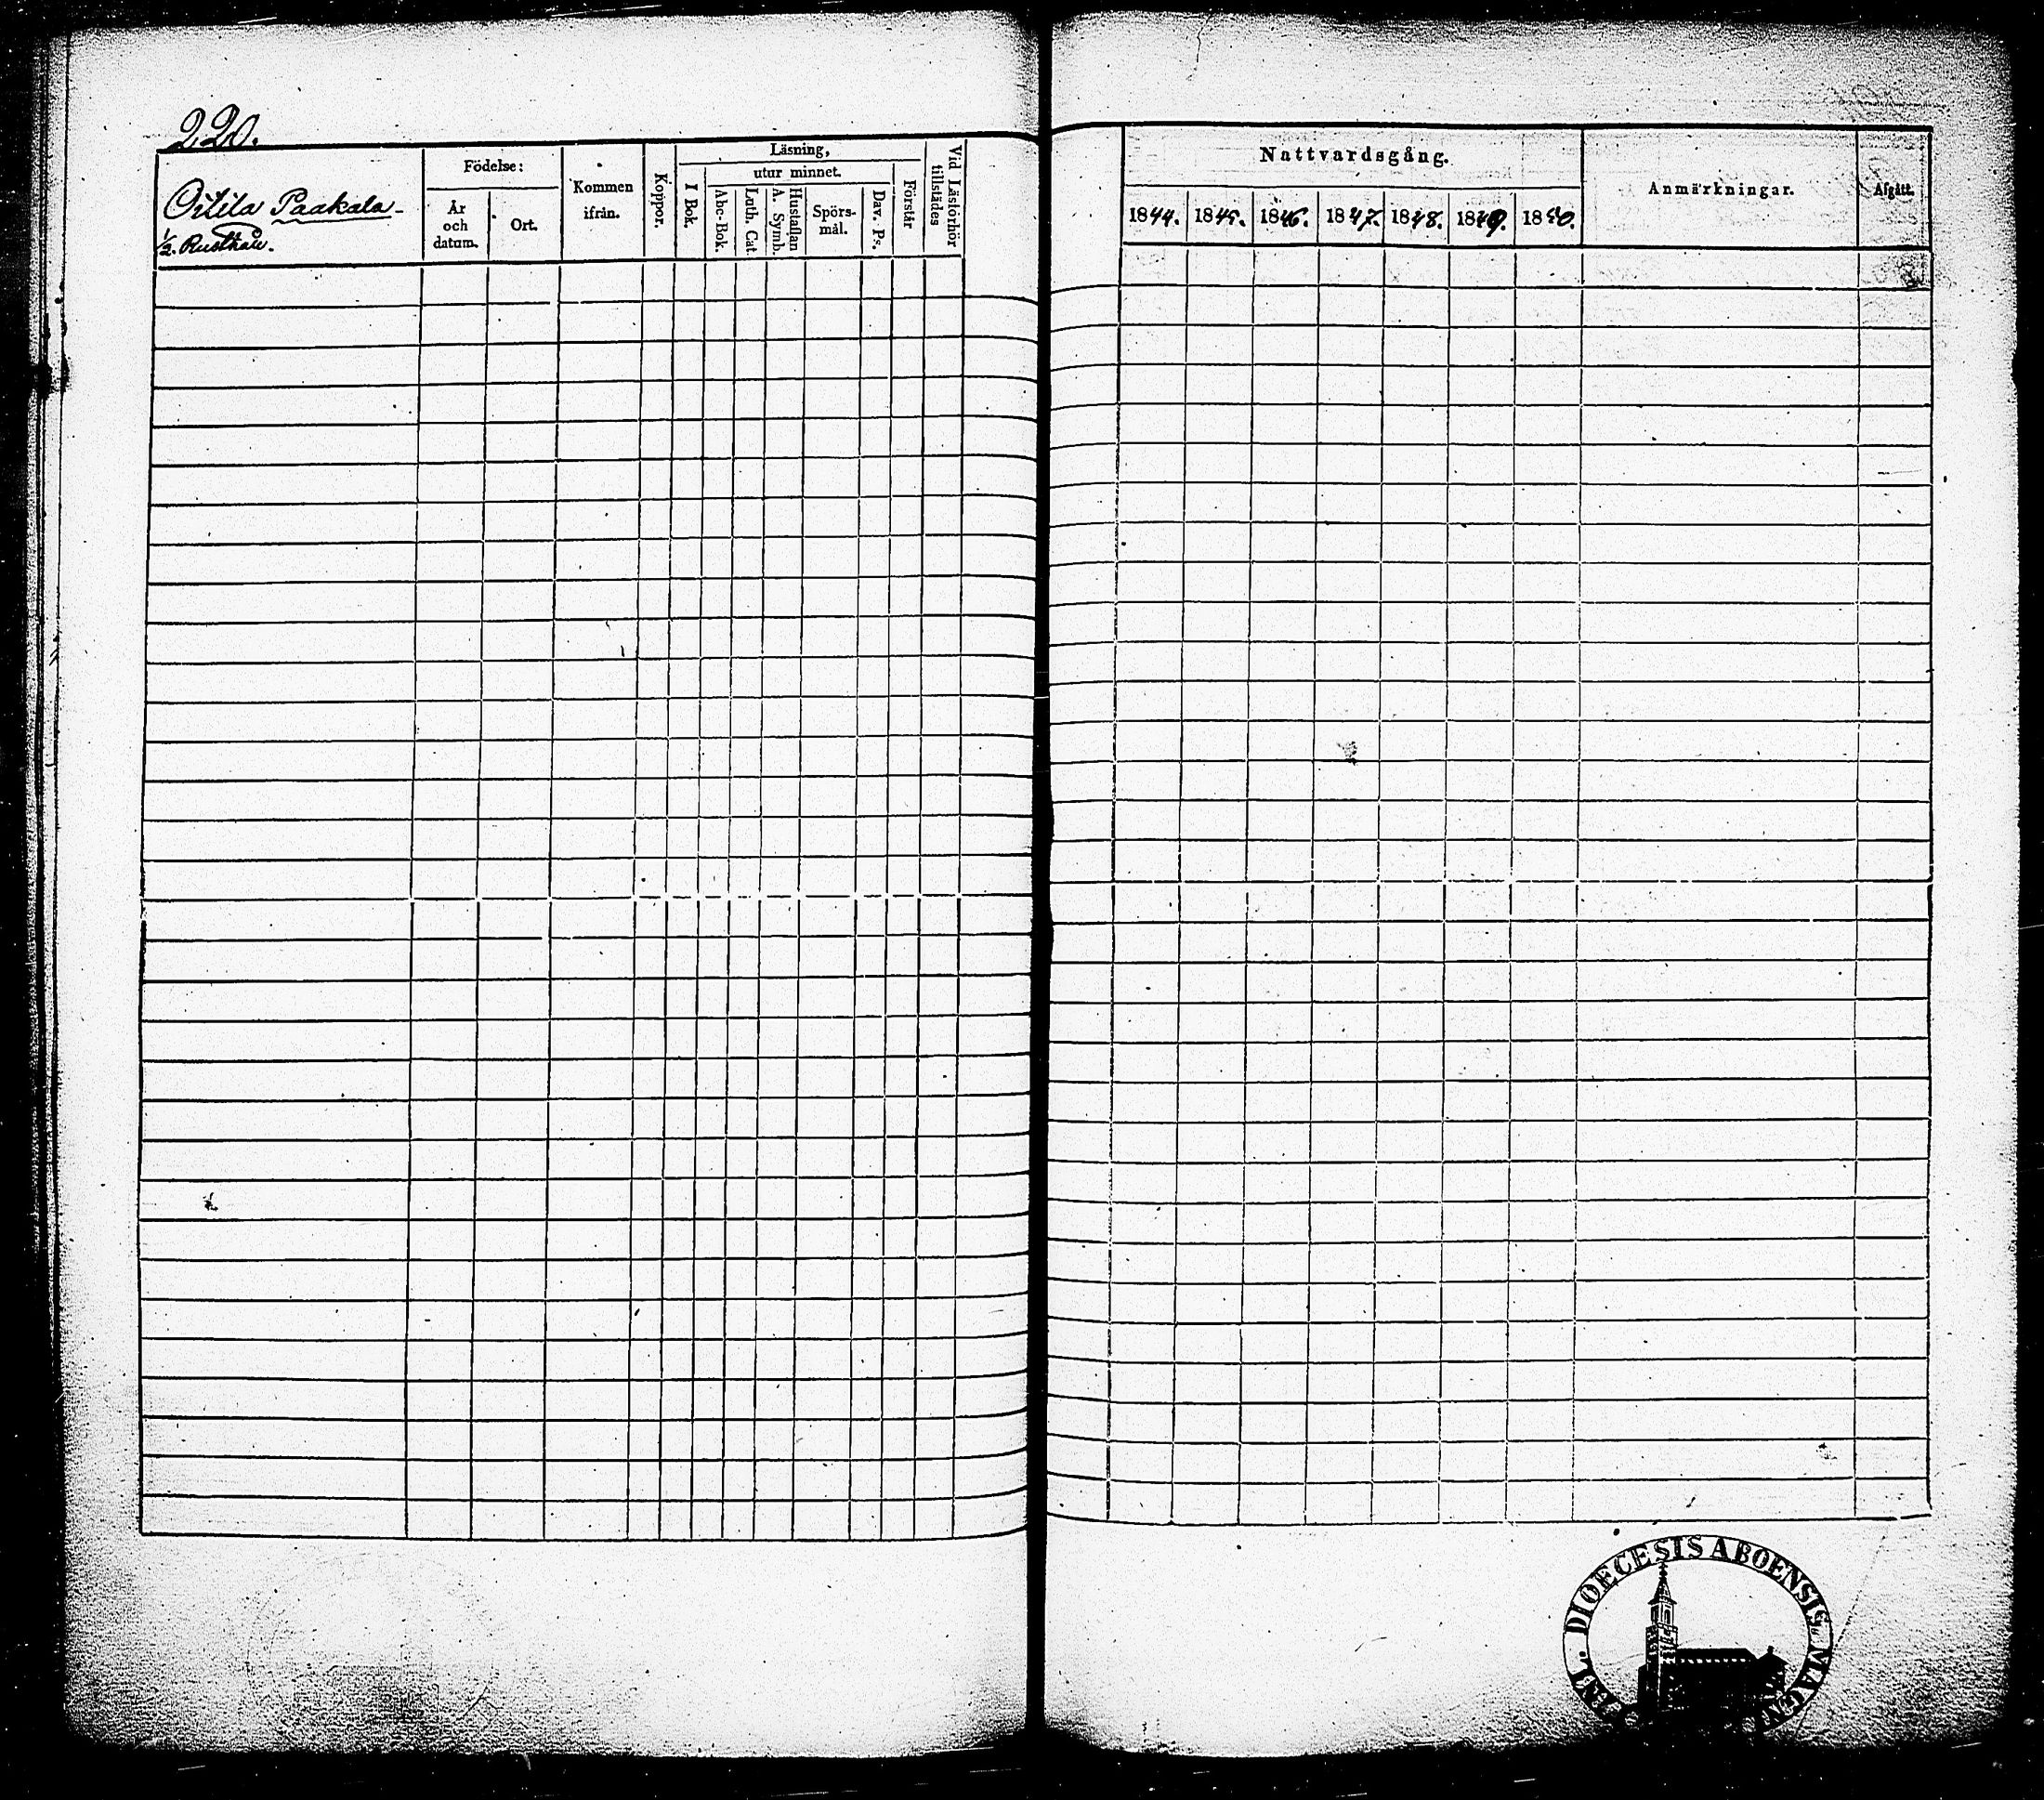 220.
Oitila Paakala
1/2. Rusthåll.
Födelse:
År och datum.
Ort.
Kommen ifrån.
Koppor.
Läsning,
I Bok.
utur minnet.
Abc-Bok.
Luth. Cat.
Hustaflan A. Symb.
Spörs-mål.
Dav. Ps.
Förstår
Vid Läsförhör tillstädes
Nattvardsgång.
1844. 1845. 1846. 1847. 1848. 1849. 1850.
Anmärkningar.
Afgått.
DIOECESIS ABOENSIS MAGN